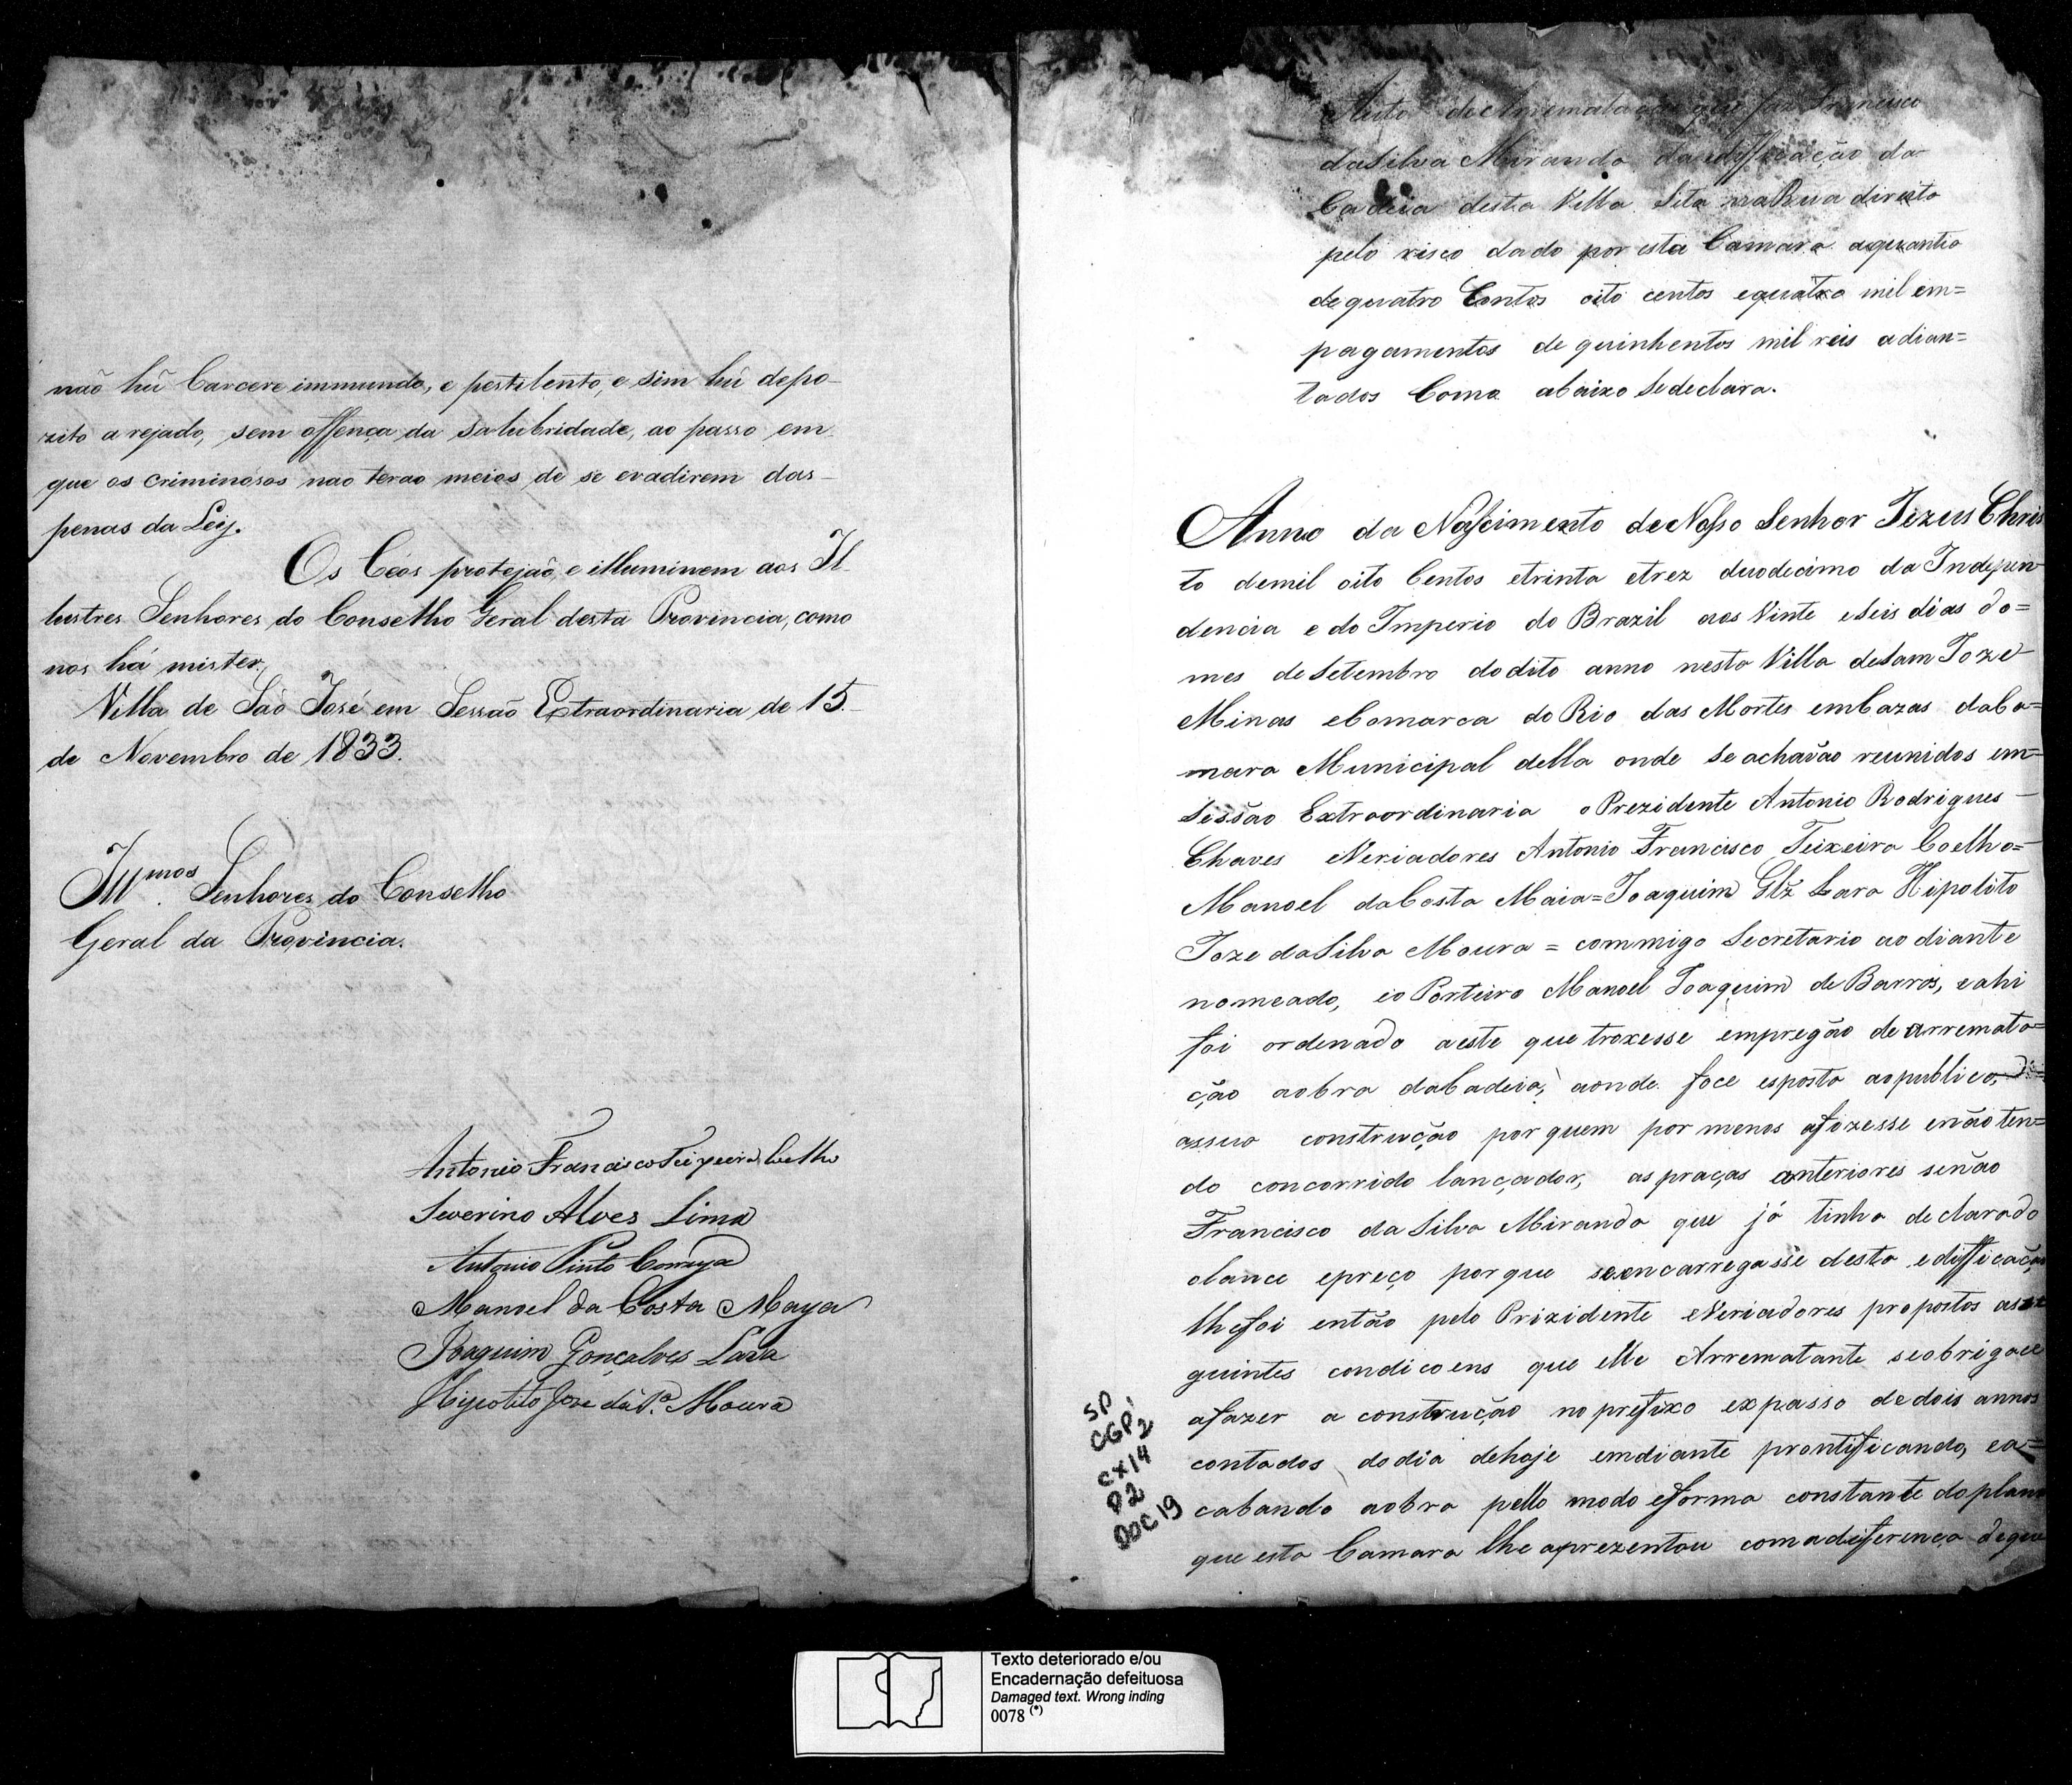 não hû Carcere immundo, e pestilento, e sim hû depo-
zito arejado, sem offença da salubridade, ao passo em
que os criminósos nao terao meios de se evadirem das
penas da Ley.
Os Céos protejaõ, e illuminem aos Il
lustres Senhores do Conselho Geral desta Provincia, como
nos há mister.
Villa de São José em Sessão Extraordinaria de 15
de Novembro de 1833.
Illmos. Senhores do Conselho
Geral da Provincia.
Antonio Francisco Teixeira Coelho
Severino Alves Lima
Antonio Pinto
Manoel da Costa Maya
Joaquim Gonçalves Lara
Hipolito Jose da Sa. Moura
Auto de Arrematação que faz Francisco
daSilva Miranda da edifficação da
Cadeia desta Villa Sita naRua direita
pelo risco dado por esta Camara aquantia
dequatro Contos oito centos equatro mil em=
pagamentos de quinhentos mil reis adian=
tados Como abaixo Sedeclara.
Anno da Nascimento deNosso Senhor Jezus Chris
to demil oito Centos etrinta etrez duodecimo da Indepen
dencia e do Imperio do Brazil aos Vinte eSeis dias do=
mes deSetembro dodito anno nesta Villa deSam Joze
Minas eComarca do Rio das Mortes emCazas daCa=
mara Municipal della onde Se achavão reunidos em=
Sessão Extraordinaria o Prezidente Antonio Rodrigues
Chaves eVeriadores Antonio Francisco Teixeira Coelho=
Manoel daCosta Maia=Joaquim Glz Lara Hipolito
Joze daSilva Moura = commigo Secretario ao diante
nomeado, eo Porteiro Manoel Joaquim de Barros, eahi
foi ordenado aeste que troxesse empregão de arremata=
ção aobra daCadeia, aonde foce esposto aopublico,
assua construcção por quem por menos afizesse enãoten=
do concorrido lançador, as praças anteriores senão
Francisco da Silva Miranda que já tinha declarado
olance epreço porque seencarregasse desta edifficação
lhefoi então pelo Prizidente eVeriadores propostos asse
guintes condicoens que elle Arrematante seobrigace
afazer a construcção noprefixo expasso dedois annos
contados dodia dehoje emdiante prontificando, ea=
cabando aobra pello modo eforma constante doplano
que esta Camara lhe aprezentou comadiferença deque
SP
CGP1
CX14
P2
DOC19
Texto deteriorado e/ou
Encadernação defeituosa
Damaged text. Wrong inding
0078 (*)